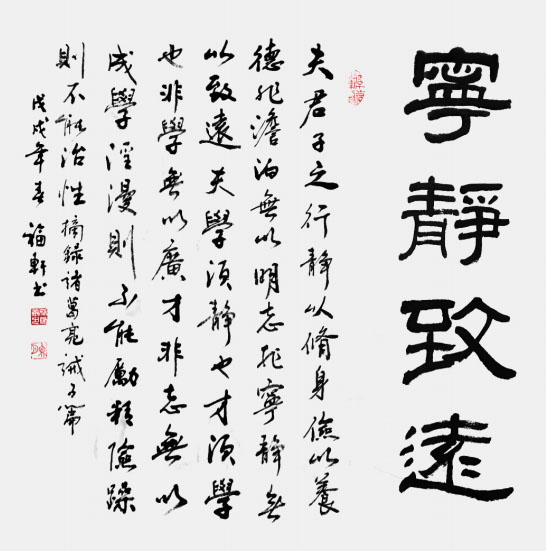 寧靜致遠
夫君子之行靜以脩身儉以養
德非澹泊無以明志非寧靜無
以致遠夫學須靜也才須學
也非學無以廣才非志無以
成學淫漫則不能勵精險躁
則不能治性摘錄諸葛亮誡子篇
戊戌年春福軒书